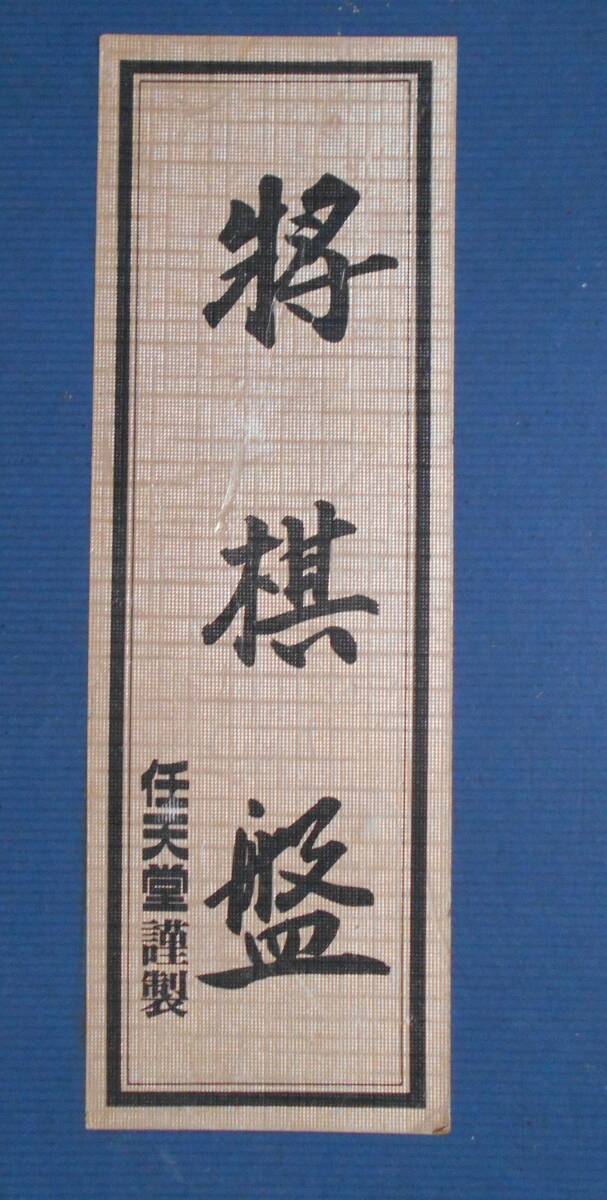 将棋盤
任天堂謹製